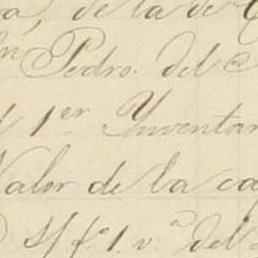 de la de
Pedro. del
1er Ynventar
Valor de la ca
S/ fº 1. v.ª del